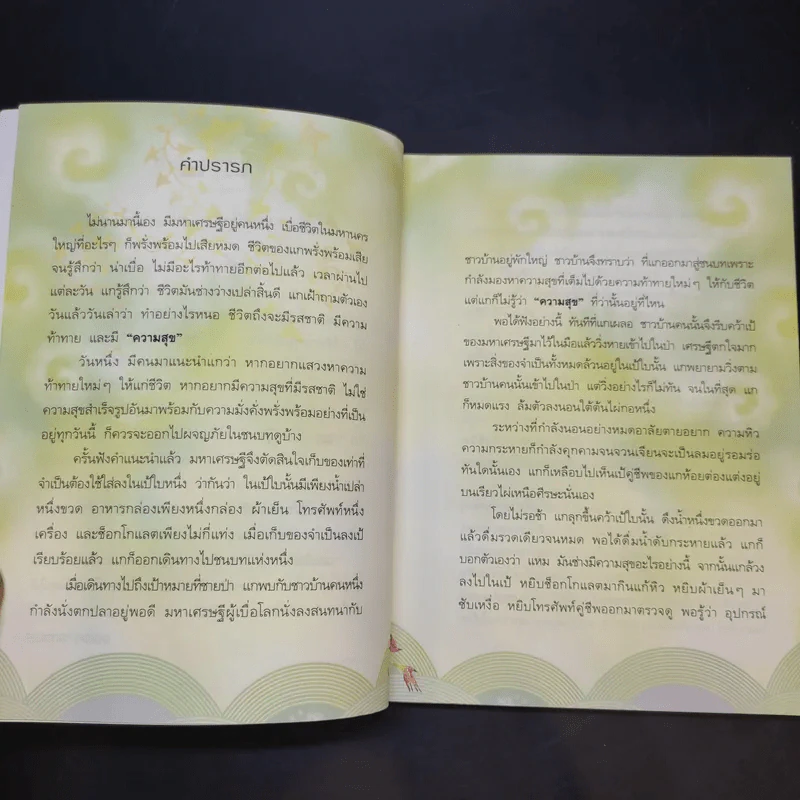 คำปรารภ
ไม่นานมานี้เอง มีมหาเศรษฐีอยู่คนหนึ่ง เบื่อชีวิตในมหานคร
ใหญ่ที่อะไรๆ ก็พรั่งพร้อมไปเสียหมด ชีวิตของแกพรั่งพร้อมเสีย
จนรู้สึกว่า น่าเบื่อ ไม่มีอะไรท้าทายอีกต่อไปแล้ว เวลาผ่านไป
แต่ละวัน แกรู้สึกว่า ชีวิตมันช่างว่างเปล่าสิ้นดี แกเฝ้าถามตัวเอง
วันแล้ววันเล่าว่า ทำอย่างไรหนอ ชีวิตถึงจะมีรสชาติ มีความ
ท้าทาย และมี “ความสุข”
วันหนึ่ง มีคนมาแนะนำแกว่า หากอยากแสวงหาความ
ท้าทายใหม่ๆ ให้แก่ชีวิต หากอยากมีความสุขที่มีรสชาติ ไม่ใช่
ความสุขสำเร็จรูปอันมาพร้อมกับความมั่งคั่งพรั่งพร้อมอย่างที่เป็น
อยู่ทุกวันนี้ ก็ควรจะออกไปผจญภัยในชนบทดูบ้าง
ครั้นฟังคำแนะนำแล้ว มหาเศรษฐีจึงตัดสินใจเก็บของเท่าที่
จำเป็นต้องใช้ใส่ลงในเป้ใบหนึ่ง ว่ากันว่า ในเป้ใบนั้นมีเพียงน้ำเปล่า
หนึ่งขวด อาหารกล่องเพียงหนึ่งกล่อง ผ้าเย็น โทรศัพท์หนึ่ง
เครื่อง และช็อกโกแลตเพียงไม่กี่แท่ง เมื่อเก็บของจำเป็นลงเป้
เรียบร้อยแล้ว แกก็ออกเดินทางไปชนบทแห่งหนึ่ง
เมื่อเดินทางไปถึงเป้าหมายที่ชายป่า แกพบกับชาวบ้านคนหนึ่ง
กำลังนั่งตกปลาอยู่พอดี มหาเศรษฐีผู้เบื่อโลกนั่งลงสนทนากับ
ชาวบ้านอยู่พักใหญ่ ชาวบ้านจึงทราบว่า ที่แกออกมาสู่ชนบทเพราะ
กำลังมองหาความสุขที่เต็มไปด้วยความท้าทายใหม่ๆ ให้กับชีวิต
แต่แกก็ไม่รู้ว่า “ความสุข” ที่ว่านั้นอยู่ที่ไหน
พอได้ฟังอย่างนี้ ทันทีที่แกเผลอ ชาวบ้านคนนั้นจึงรีบคว้าเป้
ของมหาเศรษฐีมาไว้ในมือแล้ววิ่งหายเข้าไปในป่า เศรษฐีตกใจมาก
เพราะสิ่งของจำเป็นทั้งหมดล้วนอยู่ในเป้ใบนั้น แกพยายามวิ่งตาม
ชาวบ้านคนนั้นเข้าไปในป่า แต่วิ่งอย่างไรก็ไม่ทัน จนในที่สุด แก
ก็หมดแรง ล้มตัวลงนอนใต้ต้นไผ่กอหนึ่ง
ระหว่างที่กำลังนอนอย่างหมดอาลัยตายอยาก ความหิว
ความกระหายก็กำลังคุกคามจนจวนเจียนจะเป็นลมอยู่รอมร่อ
ทันใดนั้นเอง แกก็เหลือบไปเห็นเป้คู่ชีพของแกห้อยต่องแต่งอยู่
บนเรียวไผ่เหนือศีรษะนั่นเอง
โดยไม่รอช้า แกลุกขึ้นคว้าเป้ใบนั้น ดึงน้ำหนึ่งขวดออกมา
แล้วดื่มรวดเดียวจนหมด พอได้ดื่มน้ำดับกระหายแล้ว แกก็
บอกตัวเองว่า แหม มันช่างมีความสุขอะไรอย่างนี้ จากนั้นแกล้วง
ลงไปในเป้ หยิบช็อกโกแลตมากินแก้หิว หยิบผ้าเย็นๆ มา
ซับเหงื่อ หยิบโทรศัพท์คู่ชีพออกมาตรวจดู พอรู้ว่า อุปกรณ์